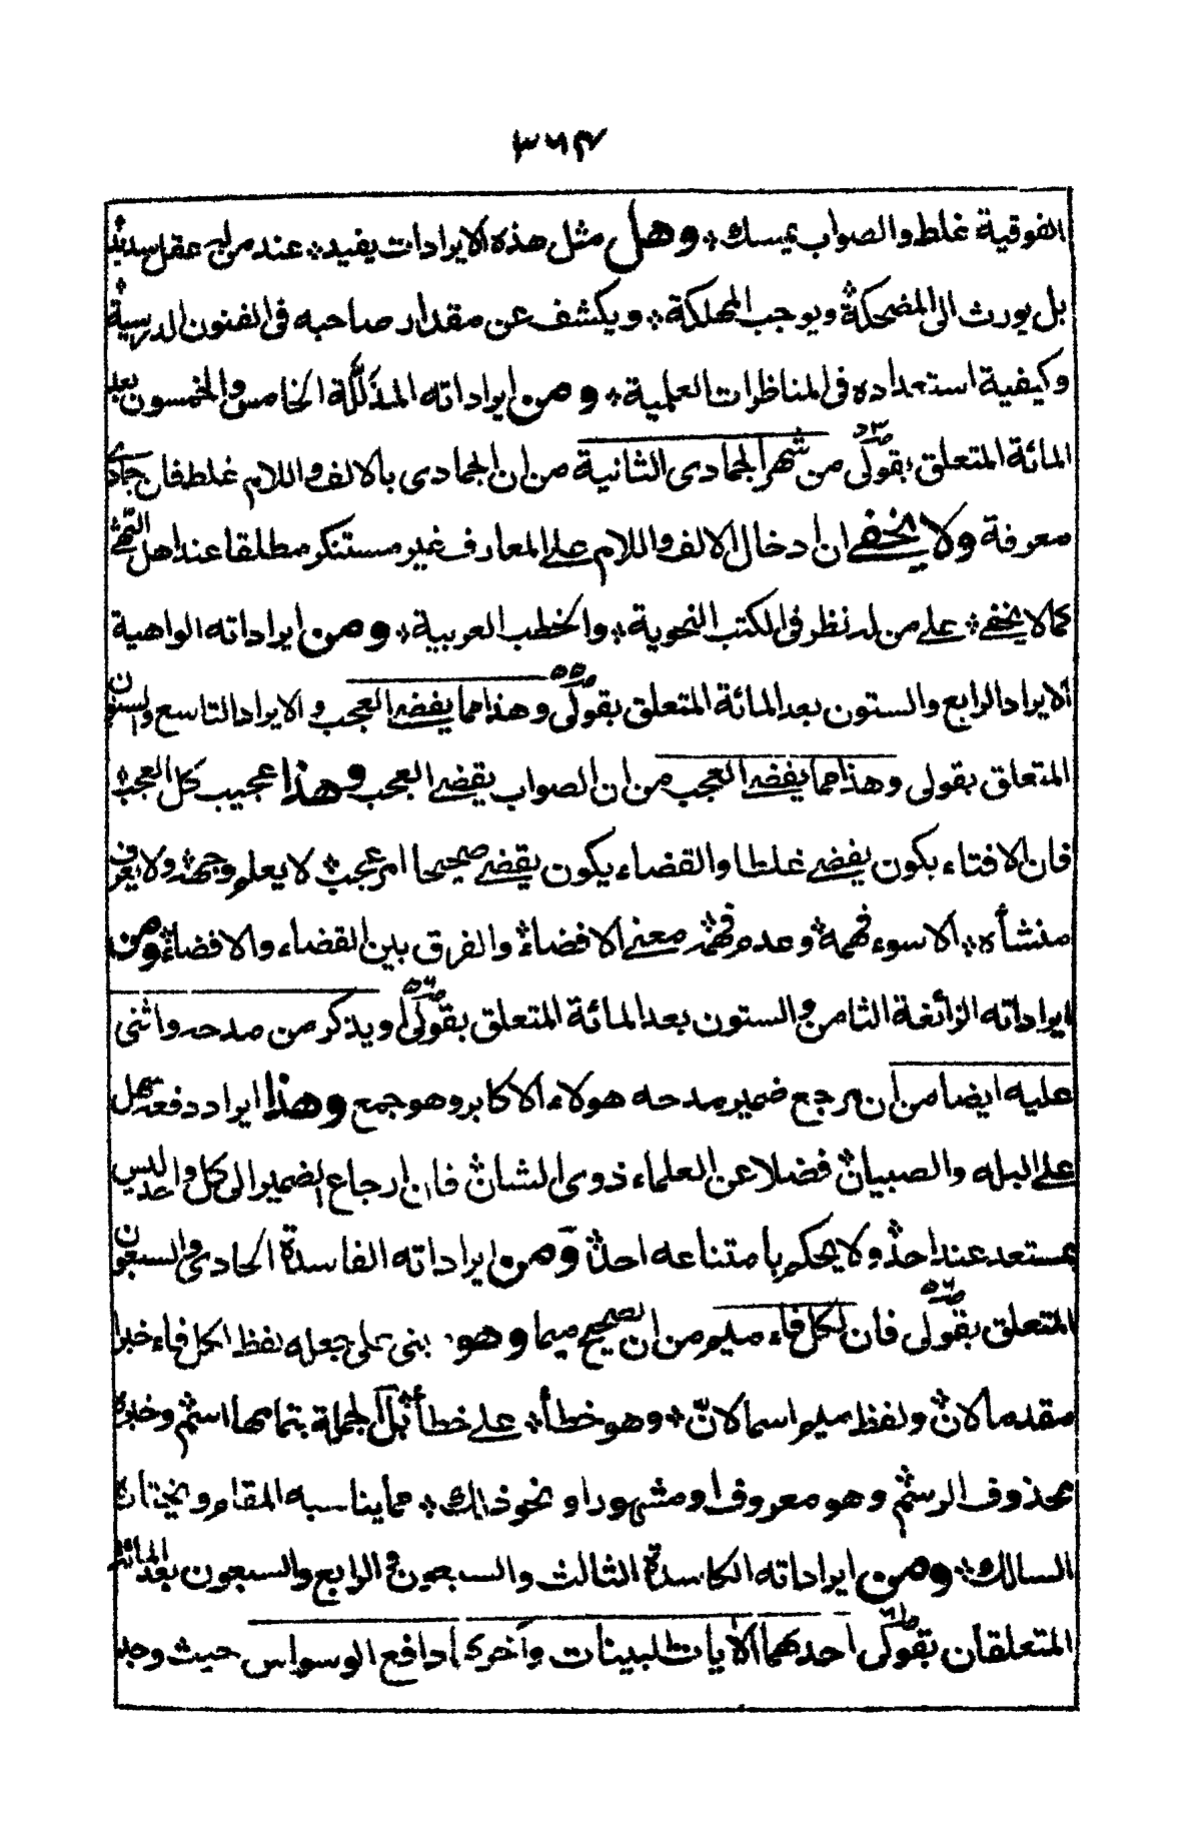 ٣٦٤
الفوقية غلط والصواب يمسك * وهل مثل هذه الايرادات يفيد * عند من له عقل سديد *
بل يورث الى المضحكة * ويوجب المهلكة * ويكشف عن مقدار صاحبه فى الفنون الدرسية *
وكيفية استعداده فى المناظرات العلمية * ومن ايراداته المذللة الخامس والخمسون بعد
المائة المتعلق بقولى من شهر الجمادى الثانية من ان الجمادى بالالف واللام غلط فان جمادى
معرفة ولا يخفى ان ادخال الالف واللام على المعارف غير مستنكر مطلقا عند اهل
كما لا يخفى * على من له نظر فى الكتب النحوية * والخطب العربية * ومن ايراداته الواهية
الايراد الرابع والستون بعد المائة المتعلق بقولى وهذا مما يفضى العجب و الايراد التاسع والستون
المتعلق بقولى وهذا مما يفضى العجب من ان الصواب يقضى العجب وهذا عجيب كل العجب *
فان الافتاء بكون يفضى غلطا والقضاء بكون يقضى صحيحا امر عجيب * لا يعلم وجهه * ولا يعرف
منشأه * الا سوء فهمه * وعدم فهمه معنى الافضاء * والفرق بين القضاء والافضاء * ومن
ايراداته الزائغة الثامن والستون بعد المائة المتعلق بقولى ويذكر من مدحه واثنى
عليه ايضا من ان مرجع ضمير مدحه هولاء الاكابر وهو جمع وهذا ايراد دفعه سهل
على البله والصبيان * فضلا عن العلماء ذوى الشان * فان ارجاع الضمير الى كل واحد ليس
بمستعد عند احد * ولا يحكم بامتناعه احد * ومن ايراداته الفاسدة الحادى والسبعون
المتعلق بقولى فان لكل فاء ميم من ان الصحيح ميما وهو بنى على جعله لفظ لكل فاء خبرا
مقدما لان * ولفظ ميم اسما لان * وهو خطأ * على خطأ * بل الجملة بتمامها اسم * وخبره
محذوف الرسم * وهو معروف او مشهور او نحو ذلك * مما يناسبه المقام ويختاره
السالك * ومن ايراداته الكاسدة الثالث والسبعون و الرابع والسبعون بعد المائة
المتعلقان بقولى احدهما الآيات البينات وآخرى دافع الوسواس حيث وجد